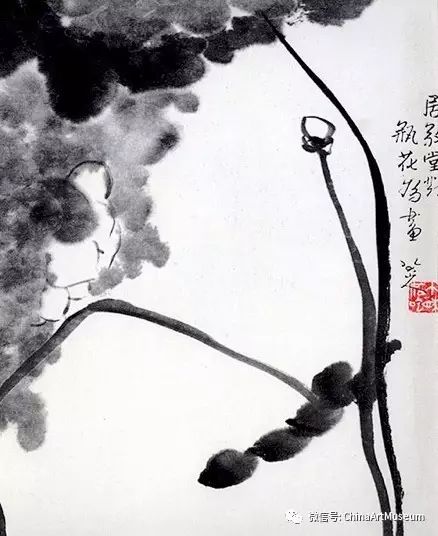 居敬堂對
瓶花為畫
微信号: ChinaArtMuseum